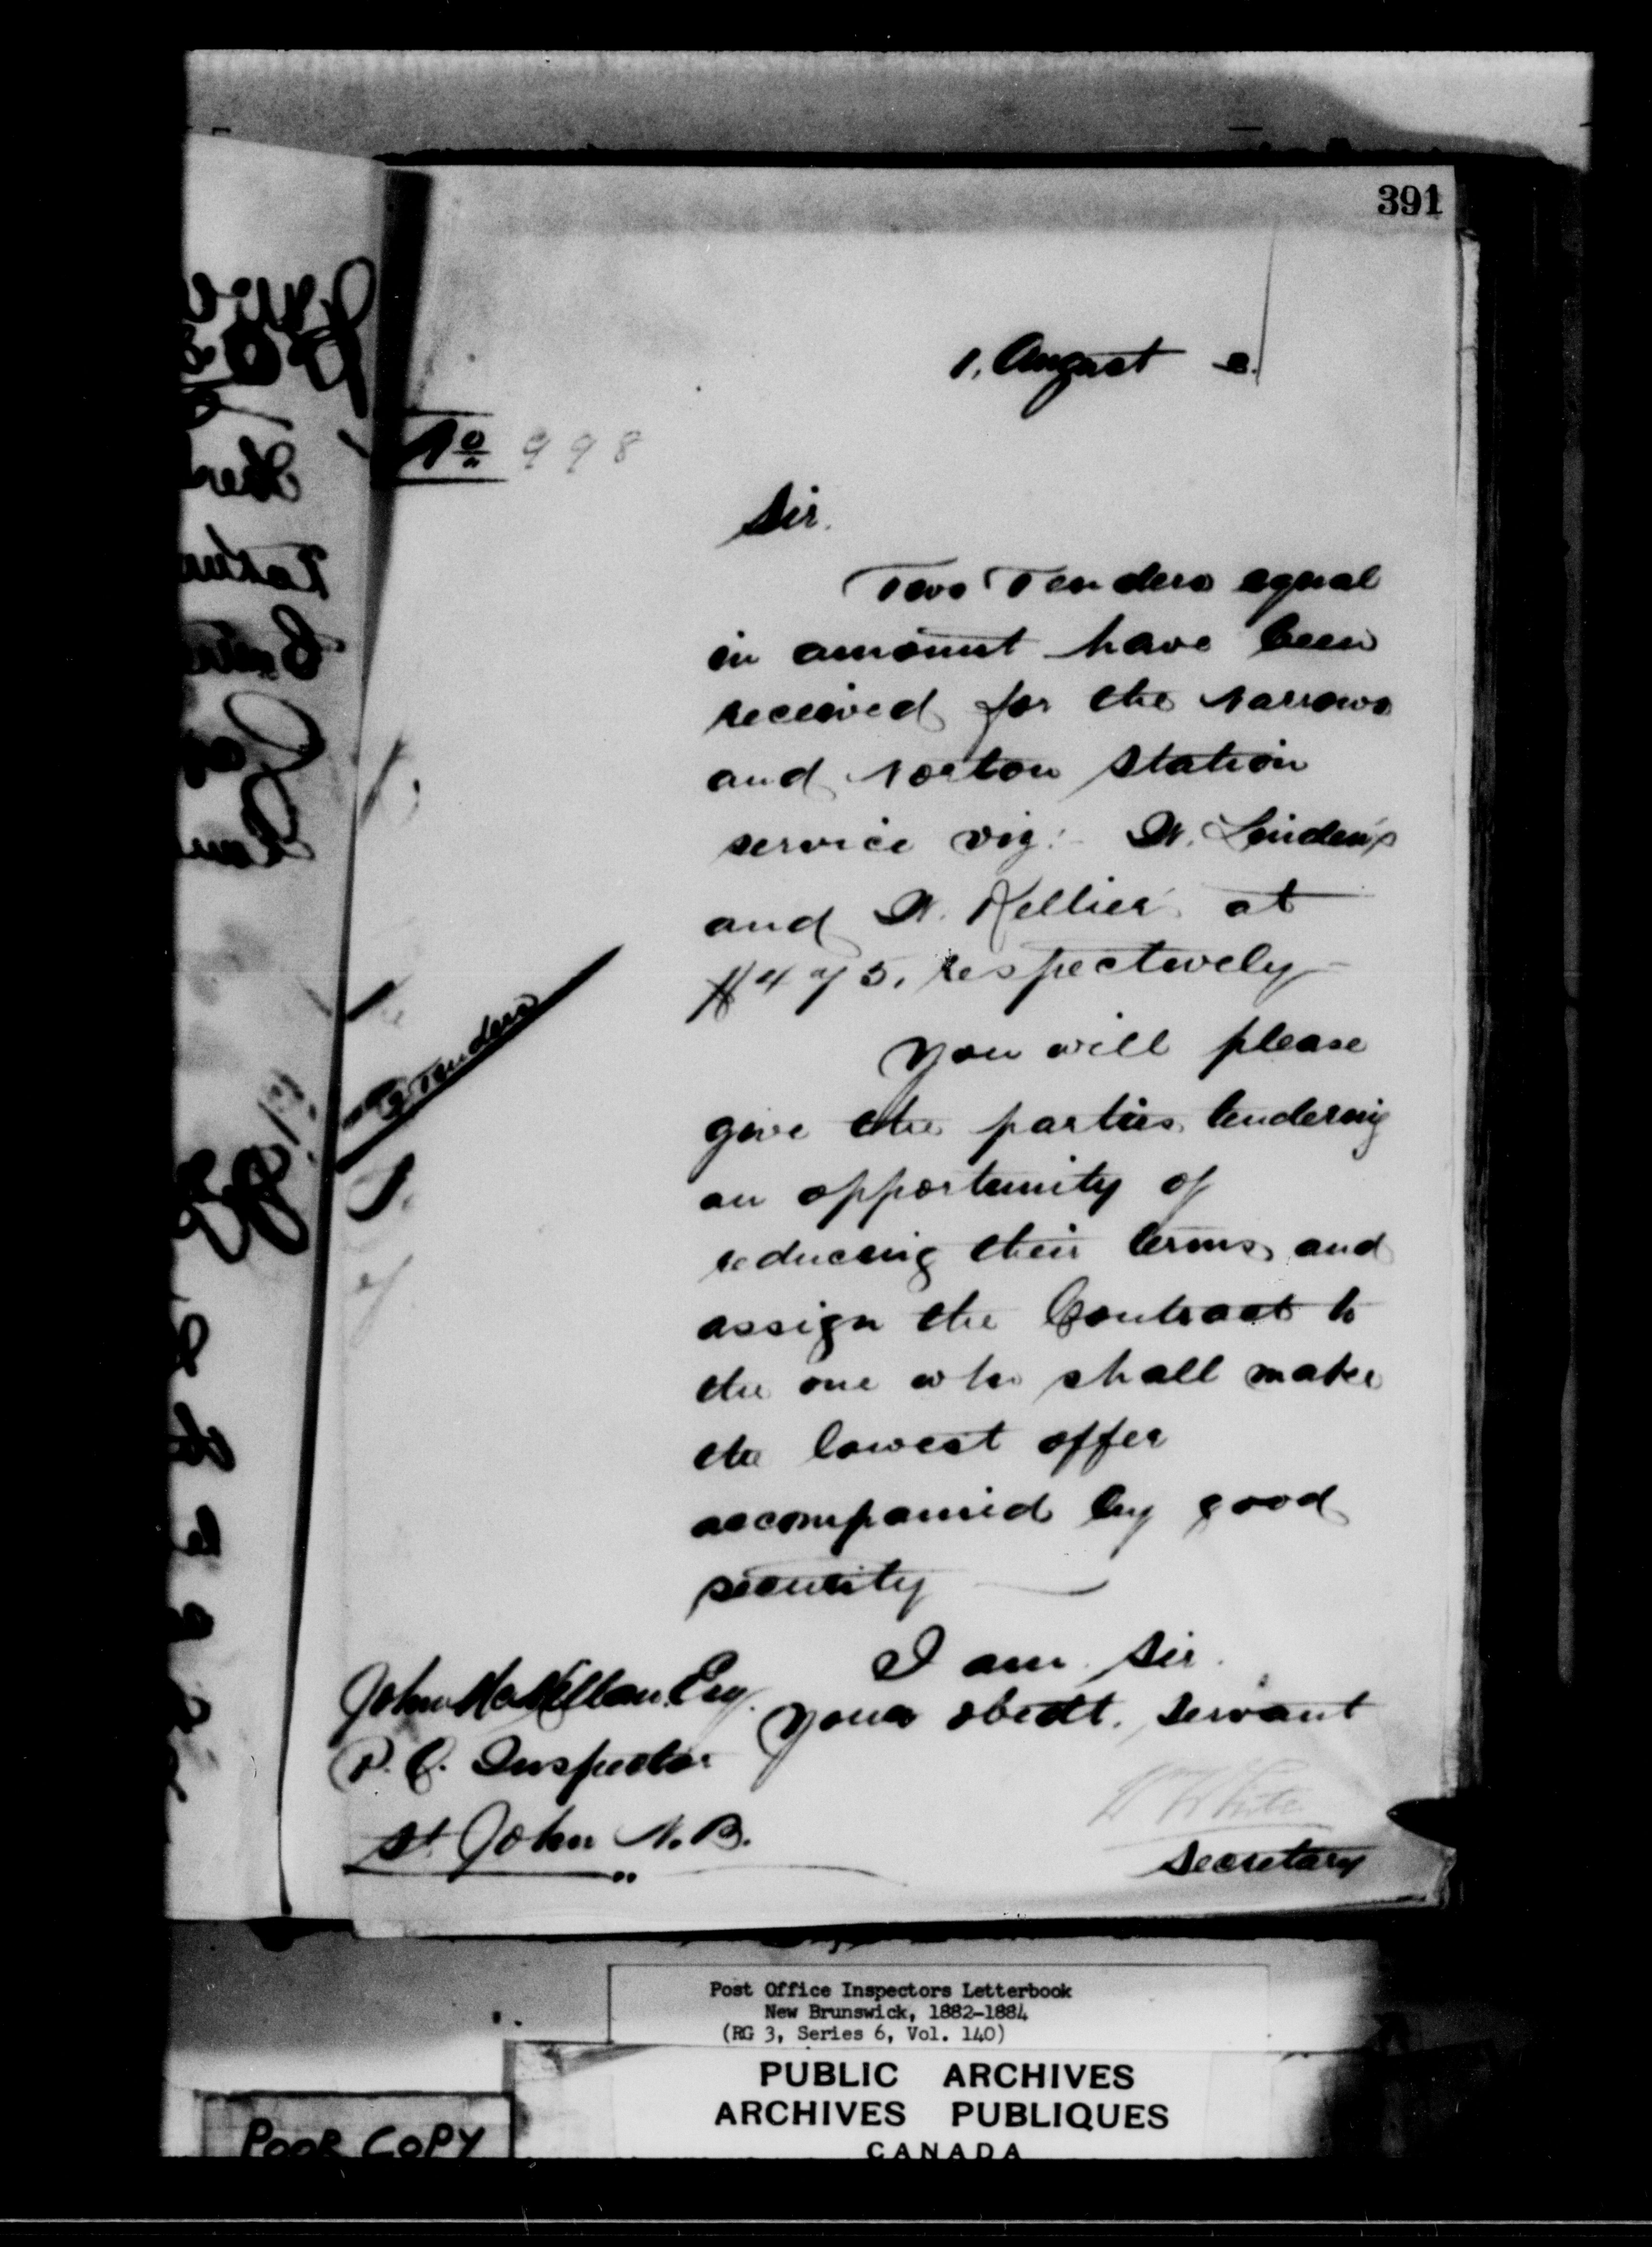 391
1, August 2.
No 998
Sir.
Two Tenders equal
in amount have been
received for the Narrows
and Norton Station
service viz:- W. Linden's
and W. Kellier' at
$475, respectively
2 Tenders
You will please
give the parties tendering
an opportunity of
reducing their terms and
assign the Contract to
the one who shall make
the lowest offer
accompanied by good
security
I am Sir.
Your obedt. servant
W White
Secretary
John McMillan Esq.
P.O. Inspector
St. John N.B.
Post Office Inspectors Letterbook
New Brunswick, 1882-1884
(RG 3, Series 6, Vol. 140)
PUBLIC ARCHIVES
ARCHIVES PUBLIQUES
CANADA
POOR COPY